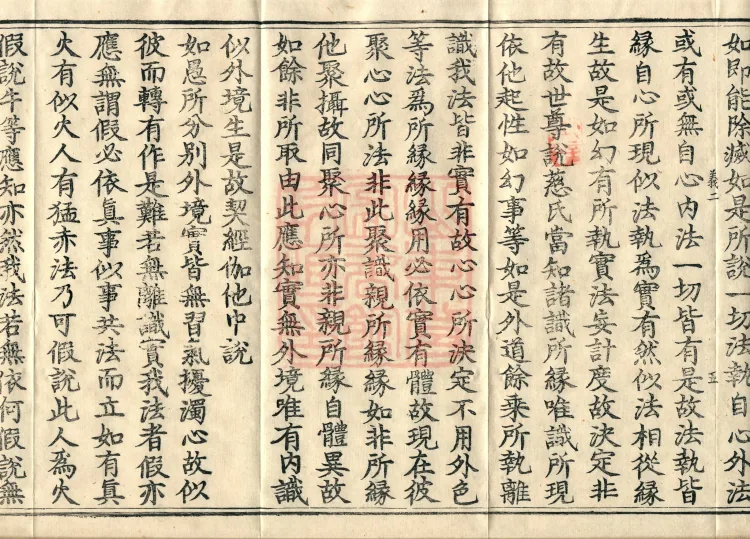 如即能除滅如是所說一切法執自心外法
或有或無自心內法一切皆有是故法執皆
緣自心所現似法執爲實有然似法相從緣
生故是如幻有所執實法妄計度故決定非
有故世尊說慈氏當知諸識所緣唯識所現
依他起性如幻事等如是外道餘乘所執離
識我法皆非實有故心心所決定不用外色
等法爲所緣緣緣用必依實有體故現在彼
聚心心所法非此聚識親所緣緣如非所緣
他聚攝故同聚心所亦非親所緣自體異故
如餘非所取由此應知實無外境唯有內識
似外境生是故契經伽他中說
如愚所分別外境實皆無習氣擾濁心故似
彼而轉有作是難若無離識實我法者假亦
應無謂假必依眞事似事共法而立如有眞
火有似火人有猛赤法乃可假說此人爲火
假說牛等應知亦然我法若無依何假說無
義二
五